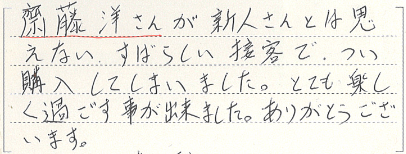 齋藤洋さんが新人さんとは思
えない、すばらしい接客で、つい
購入してしまいました。とても楽し
く過ごす事が出来ました。ありがとうござ
います。